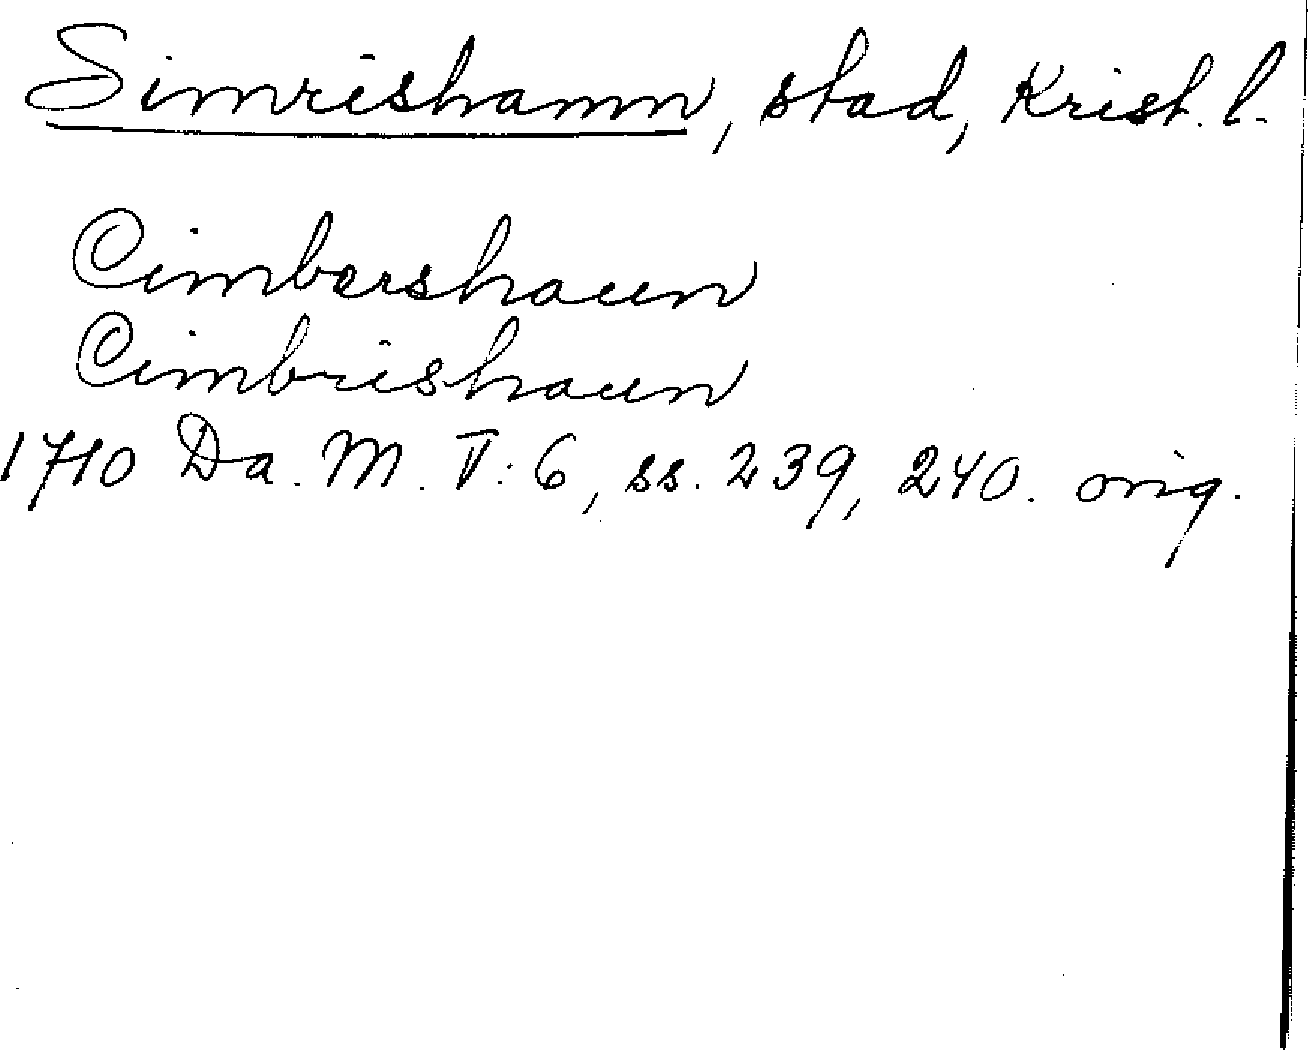 Simrishamn, stad, Krist. l.
Cimbershaun
Cimbrishaun
1710 Da. M. V: 6, ss. 239, 240. orig.